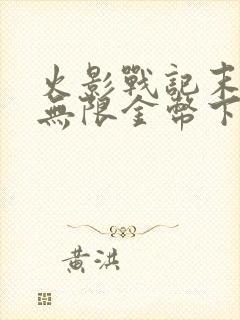 火影戰記末
無限金幣下
黃洪